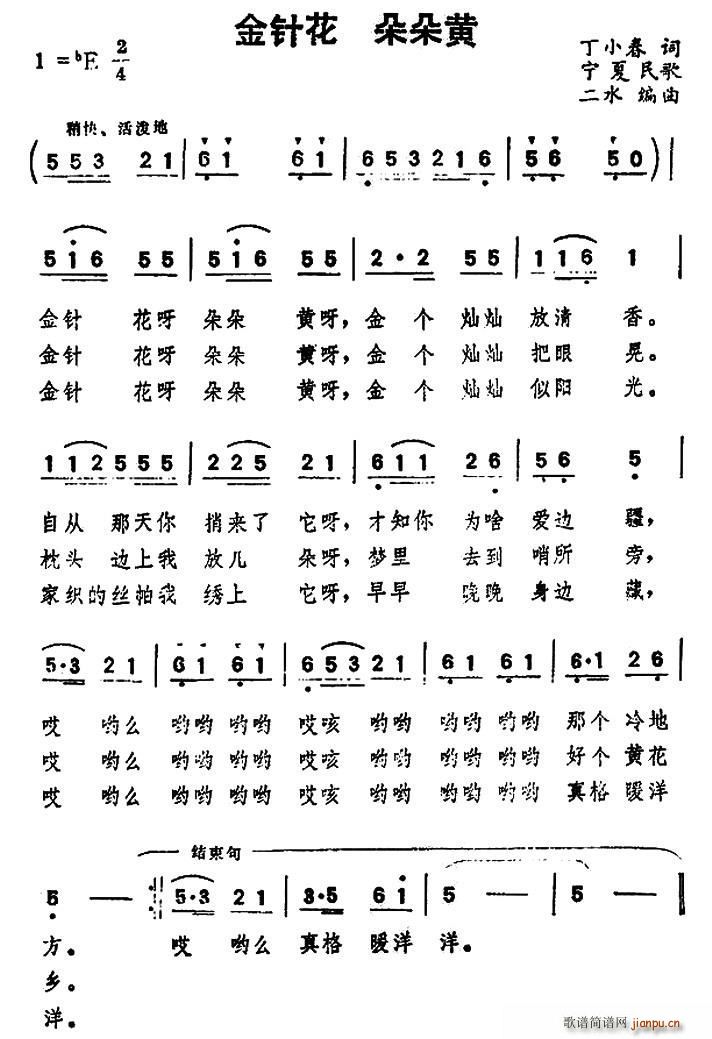 金针花 朵朵黄
1=♭E 2/4
丁小春 词
宁夏民歌
二水 编曲
稍快、活泼地
(5 5 3 2 1 | 6 1 6 1 | 6 5 3 2 1 6 | 5 6 5 0) |
5 1 6 5 5 | 5 1 6 5 5 | 2 · 2 5 5 | 1 1 6 1 |
金针 花呀 朵朵 黄呀，金 个 灿灿 放清 香。
金针 花呀 朵朵 黄呀，金 个 灿灿 把眼 晃。
金针 花呀 朵朵 黄呀，金 个 灿灿 似阳 光。
1 1 2 5 5 5 5 | 2 2 5 2 1 | 6 1 1 2 6 | 5 6 5 |
自从 那天你 捎来了 它呀，才知你 为啥 爱边 疆，
枕头 边上我 放几 朵呀，梦里 去到 哨所 旁，
家织的丝帕我 绣上 它呀，早早 晚晚 身边 藏，
5·3 2 1 | 6 1 6 1 | 6 5 3 2 1 | 6 1 6 1 | 6·1 2 6 |
哎 哟么 哟哟 哟哟 哎咳 哟哟 哟哟 哟哟 那个 冷地
哎 哟么 哟哟 哟哟 哎咳 哟哟 哟哟 哟哟 好个 黄花
哎 哟么 哟哟 哟哟 哎咳 哟哟 哟哟 哟哟 真格 暖洋
结束句
5 — :‖ 5·3 2 1 | 3·5 6 1 | 5 — | 5 — ‖
方。 哎 哟么 真格 暖洋 洋。
乡。
洋。
歌谱简谱网
jianpu.cn